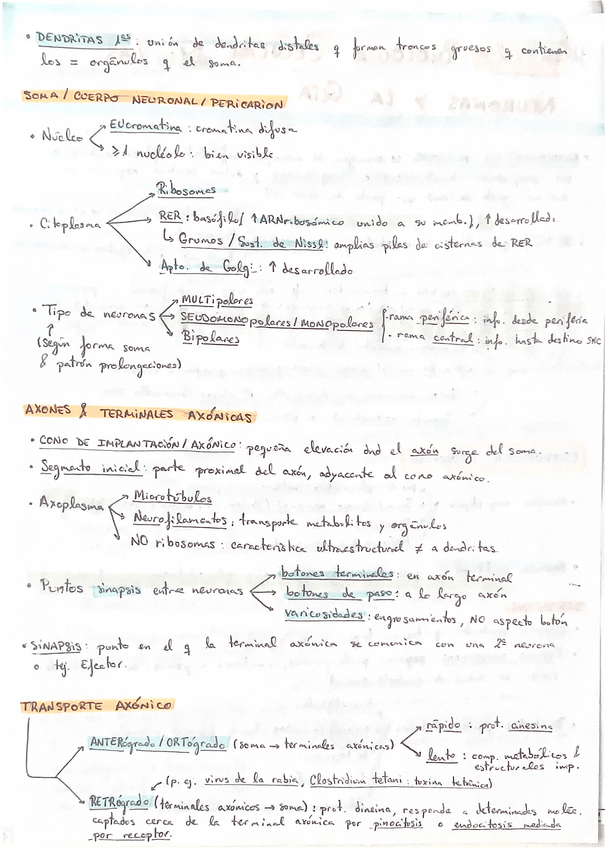 • DENDRITAS 1as: unión de dendritas distales q forman troncos gruesos q contienen
los = orgánulos q el soma.
SOMA / CUERPO NEURONAL / PERICARION
• Núcleo
EUcromatina: cromatina difusa
≥1 nucléolo: bien visible
• Citoplasma
Ribosomas
RER: basófilo/ ↑ARNribosómico unido a su memb.), ↑desarrollad.
↳ Grumos / Sust. de Nissl: amplias pilas de cisternas de RER
Apto. de Golgi: ↑ desarrollado
• Tipo de neuronas
(según forma soma
& patrón prolongaciones)
MULTIpolares
SEUDOMONOpolares / MONOpolares
Bipolares
- rama periférica: info. desde periferia
- rama central: info. hasta destino SNC
AXONES & TERMINALES AXÓNICAS
• CONO DE IMPLANTACIÓN / AXÓNICO: pequeña elevación dnd el axón surge del soma.
• Segmento inicial: parte proximal del axón, adyacente al cono axónico.
• Axoplasma
Microtúbulos
Neurofilamentos: transporte metabolitos y orgánulos
NO ribosomas: característica ultraestructural ≠ a dendritas.
• Puntos sinapsis entre neuronas
botones terminales: en axón terminal
botones de paso: a lo largo axón
varicosidades: engrosamientos, NO aspecto botón.
• SINAPSIS: punto en el q la terminal axónica se comunica con una 2ª neurona
o tej. Efector.
TRANSPORTE AXÓNICO
ANTERógrado / ORTógrado (soma → terminales axónicas)
rápido: prot. cinesina
lento: comp. metabólicos &
estructurales imp.
(p. ej. virus de la rabia, Clostridium tetani: toxina tetánica)
RETRógrado (terminales axónicos → soma): prot. dineina, responde a determinadas moléc.
captados cerca de la terminal axónica por pinocitosis o endocitosis mediada
por receptor.